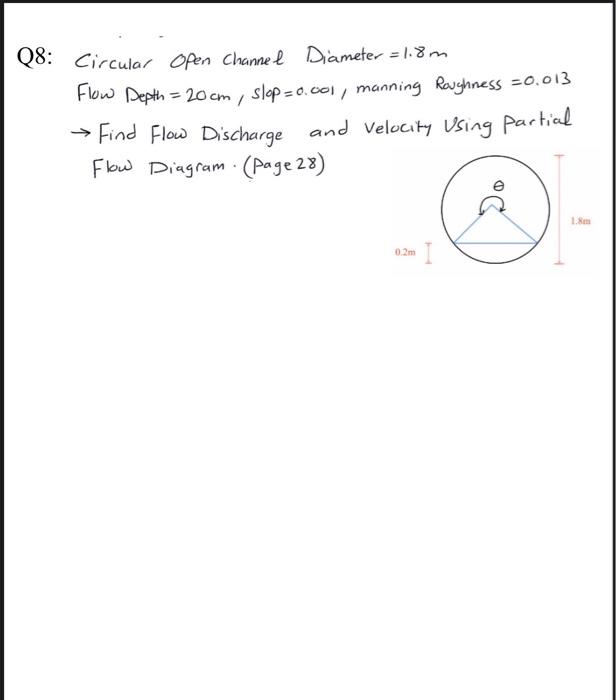 Q8: Circular Open Channel Diameter = 1.8m
Flow Depth = 20cm, slop = 0.001, manning Roughness = 0.013
→ Find Flow Discharge and Velocity Using partial
Flow Diagram. (page 28)
θ
1.8m
0.2m